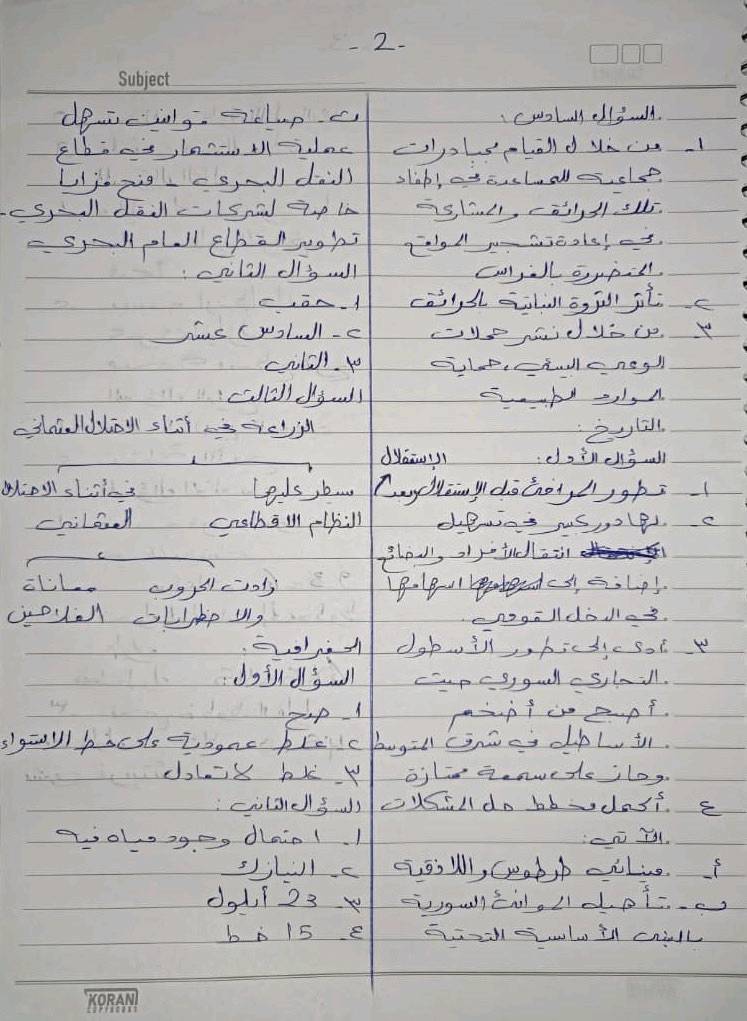 - 2 -
Subject
السؤال السادس:
1- من خلال القيام بمبادرات
جماعية للمساعدة في إطفاء
تلك الحرائق والمشاركة
في إعادة تشجير المواقع
المتضررة بالغراس
2- تأثر الثروة النباتية بالحرائق
3- من خلال نشر حملات
الوعي البيئي، حماية
الموارد الطبيعية
التاريخ:
السؤال الأول:
1- تطور المرافئ قبل الإستقلال وبعد الإستقلال
2- لها دور كبير في تسهيل
انتقال الأفراد والبضائع
إضافة إلى اسهامها
في الدخل القومي.
3- أدى إلى تطور الأسطول
التجاري السوري حيث
أصبح من أضخم
الأساطيل في شرق المتوسط
وحاز على سمعة ممتازة
4- أكمل مخطط حل المشكلات
الآتي:
أ- مينائي طرطوس واللاذقية
ب- تأهيل الموانئ السورية
بالبنى الأساسية التحتية
ت- صياغة قوانين تسهل
عملية الاستثمار في قطاع
النقل البحري - منح مزايا
خاصة لشركات النقل البحري-
تطوير القطاع العام البحري
السؤال الثاني:
1- حقب
2- السادس عشر
3- الثاني
السؤال الثالث:
الزراعة في أثناء الاحتلال العثماني
سيطر عليها في أثناء الاحتلال
النظام الاقطاعي العثماني
زادت الحروب معاناة
والاضطرابات الفلاحين
الجغرافية:
السؤال الأول:
1- صح
2- غلط عمودية على خط الاستواء
3- غلط لا تعادل
السؤال الثاني:
1- احتمال وجود مياه فيه
2- النيازك
3- 23 أيلول
4- 15 خط
KORAN
COPYBOOKS